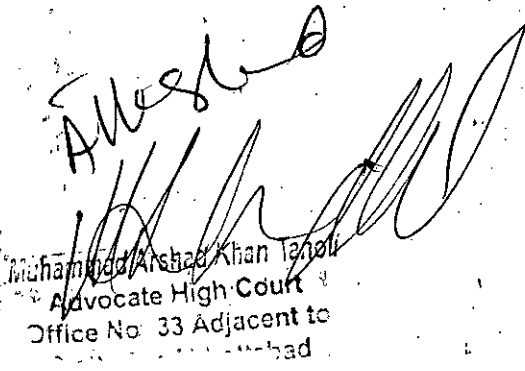 Attested
Muhammad Arshad Khan Tanoli
Advocate High Court
Office No. 33 Adjacent to